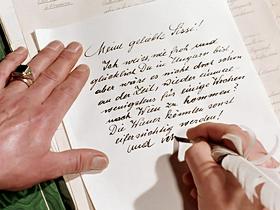 Meine geliebte Sissi!
Ich weiss, wie froh und
glücklich Du in Ungarn bist,
aber wäre es nicht doch schon
an der Zeit, wieder einmal
wenigstens für einige Wochen
nach Wien zu kommen?
Die Wiener könnten sonst
eifersüchtig werden!
und ver